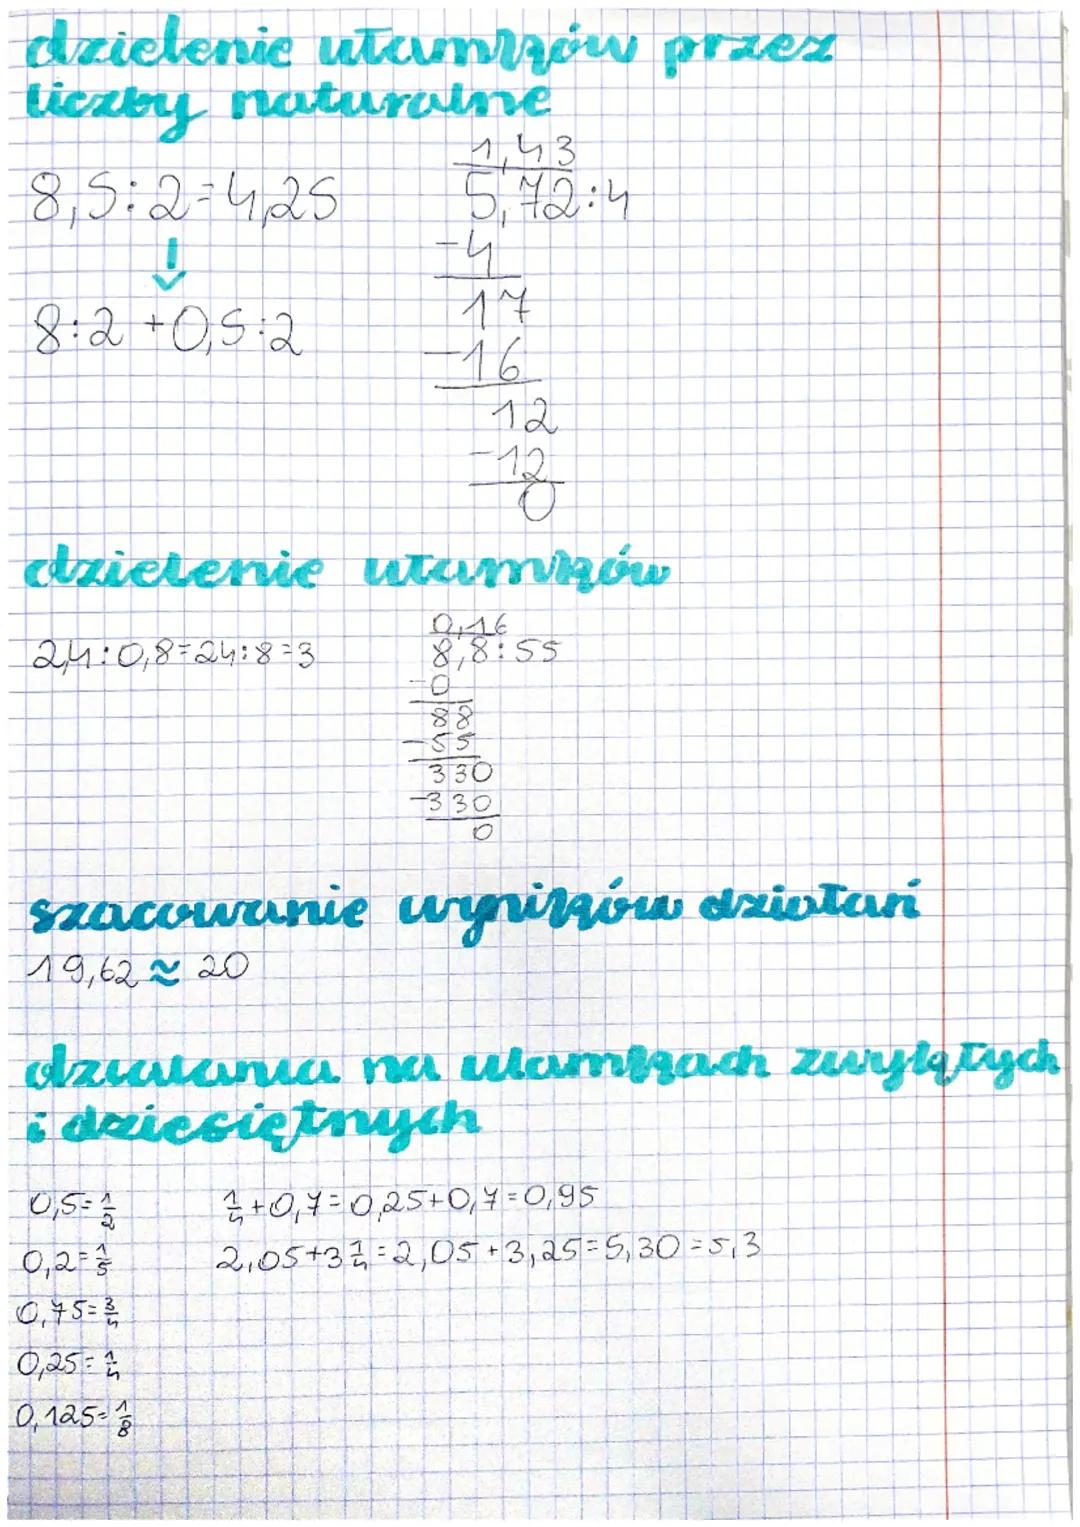 dzielenie ułamków przez
liczby naturalne
8,5:2=4,25
↓
8:2+0,5:2
1,43
5,72:4
-4
17
-16
12
-12
0
dzielenie ułamków
2,4:0,8=24:8=3
0,16
8,8:55
-0
88
-55
330
-330
0
szacowanie wyników działań
19,62≈20
działania na ułamkach zwykłych
i dziesiętnych
0,5=1/2
1/4+0,7=0,25+0,7=0,95
0,2=1/5
2,05+3 1/4=2,05+3,25=5,30=5,3
0,75=3/4
0,25=1/4
0,125=1/8